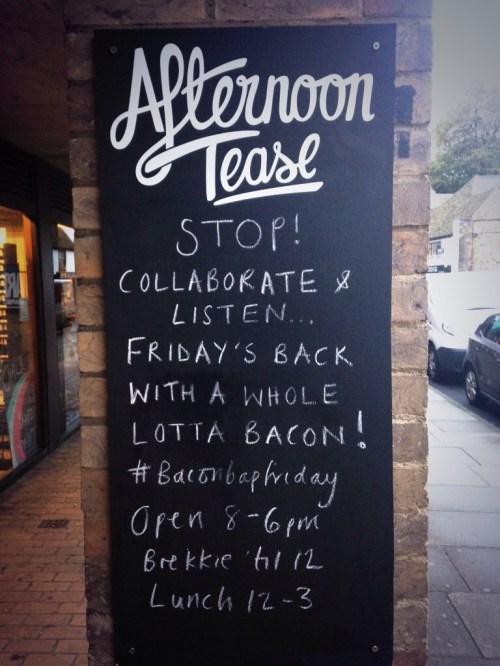 Afternoon
Tease
STOP!
COLLABORATE &
LISTEN...
FRIDAY'S BACK
WITH A WHOLE
LOTTA BACON!
#Baconbapfriday
Open 8-6pm
Brekkie 'til 12
Lunch 12-3